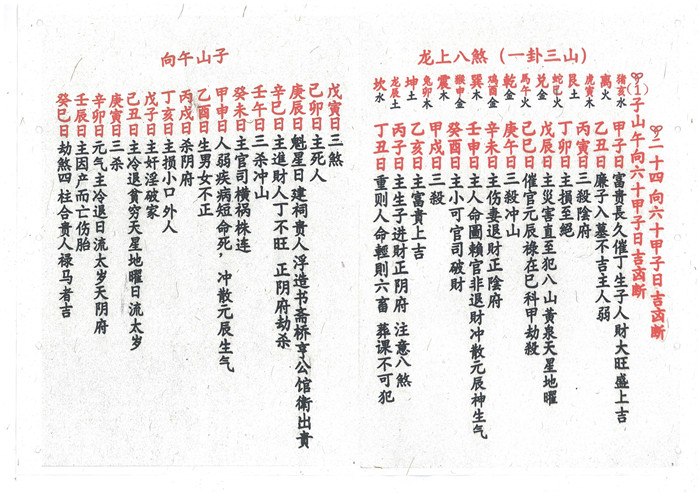 龙上八煞（一卦三山）
二十四向六十甲子日吉凶断
(1)子山午向六十甲子日吉凶断
猪亥水
离火
虎寅木
艮土
蛇巳火
兑金
馬午火
乾金
鸡酉金
巽木
猴申金
震木
兔卯木
坤土
龙辰土
坎水
甲子日富貴長久催丁生子人財大旺盛上吉
乙丑日廉子入墓不吉主人弱
丙寅日三殺陰府
丁卯日主損至絕
戊辰日主災害直至犯八山黄泉天星地曜
己巳日催官元辰禄在巳科甲劫殺
庚午日三殺冲山
辛未日主伤妻退財正陰府
壬申日主人命圖賴官非退財冲散元辰神生气
癸酉日主小可官司破財
甲戌日三殺
乙亥日主富貴上吉
丙子日主生子进財正阴府 注意八煞
丁丑日重则人命輕則六畜 葬课不可犯
向午山子
戊寅日三煞
己卯日主死人
庚辰日魁星日建祠貴人浮造书斋桥亨公馆衛出貴
辛巳日主進財人丁不旺 正阴府劫杀
壬午日三杀冲山
癸未日主官司橫禍株连
甲申日人弱疾病短命死，冲散元辰生气
乙酉日生男女不正
丙戌日杀阴府
丁亥日主损小口外人
戊子日主奸淫破家
己丑日主冷退贫穷天星地曜日流太岁
庚寅日三杀
辛卯日元气主冷退日流太岁天阴府
壬辰日主因产而亡伤胎
癸巳日劫煞四柱合貴人禄马者吉